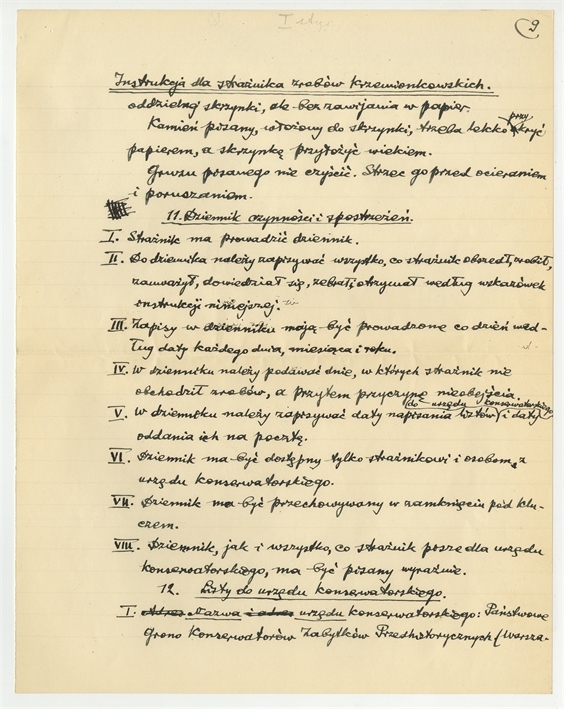 I
9
Instrukcja dla strażnika zrębów Krzemionkowskich.
oddzielnej skrzynki, ale bez zawijania w papier.
Kamień pisany, włożony do skrzynki, trzeba lekko przykryć
papierem, a skrzynkę przyłożyć wiekiem.
Gruzu pisanego nie czyścić. Strzec go przed ocieraniem
i poruszaniem.
11. Dziennik czynności i spostrzeżeń.
I. Strażnik ma prowadzić dziennik.
II. Do dziennika należy zapisywać wszystko, co strażnik obszedł, zrobił,
zauważył, dowiedział się, zebrał, otrzymał według wskazówek
instrukcji niniejszej.
III. Zapisy w dzienniku mają być prowadzone co dzień wed-
ług daty każdego dnia, miesiąca i roku.
IV. W dzienniku należy podawać dnie, w których strażnik nie
obchodził zrębów, a przytem przyczynę nieobejścia.
V. W dzienniku należy zapisywać daty napisania listów do urzędu konserwatorskiego i daty
oddania ich na pocztę.
VI. Dziennik ma być dostępny tylko strażnikowi i osobom z
urzędu konserwatorskiego.
VII. Dziennik ma być przechowywany w zamknięciu pod klu-
czem.
VIII. Dziennik, jak i wszystko, co strażnik pisze dla urzędu
konserwatorskiego, ma być pisany wyraźnie.
12. Listy do urzędu konserwatorskiego.
I. Adres Nazwa i adres urzędu konserwatorskiego: Państwowe
Grono Konserwatorów Zabytków Przedhistorycznych (Warsza-